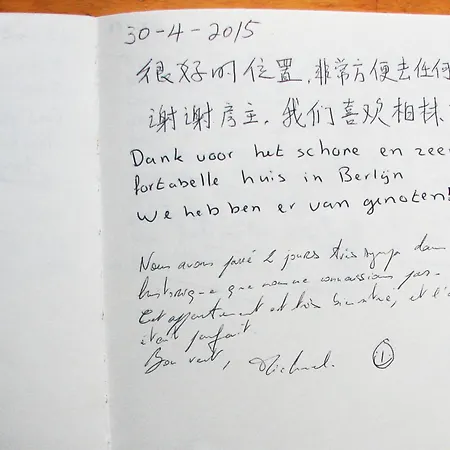 30-4-2015
很好的位置,非常方便去任何
谢谢房主,我们喜欢柏林
Dank voor het schone en zeer
fortabelle huis in Berlijn
We hebben er van genoten!
Nous avons passé 2 jours très sympa dans
historique que nous ne connaissions pas.
Cet appartement est très bien situé, et l'
était parfait.
Bon vent, Michael. 1